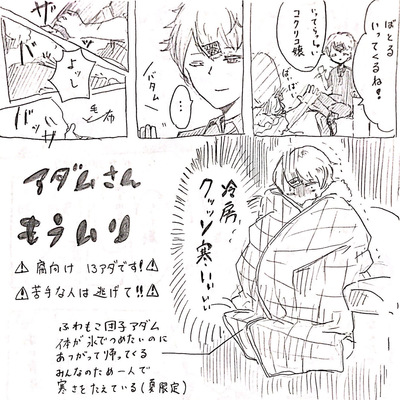 ばとる
いってくるね!
いってらっしゃい
コクリコ娘
ばっ
ばっ
…
バタム
ザッ
よッし
毛布
バサッ
アダムさん
もうムリ
⚠腐向け 13アダです!⚠
⚠苦手な人は逃げて!!⚠
冷房!
クッソ寒いぃぃぃ
ふわもこ団子アダム
体が氷でつめたいのに
あつがって帰ってくる
みんなのため一人で
寒さをたえている(夏限定)